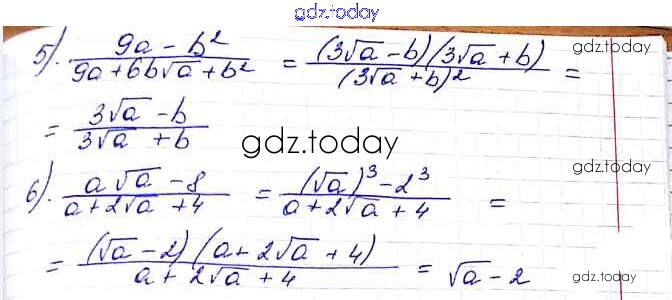 gdz.today
5). (9a - b²)/(9a + 6b√a + b²) = ((3√a - b)(3√a + b))/((3√a + b)²) =
gdz.today
= (3√a - b)/(3√a + b)
gdz.today
6). (a√a - 8)/(a + 2√a + 4) = ((√a)³ - 2³)/(a + 2√a + 4) =
gdz.today
= ((√a - 2)(a + 2√a + 4))/(a + 2√a + 4) = √a - 2
gdz.today